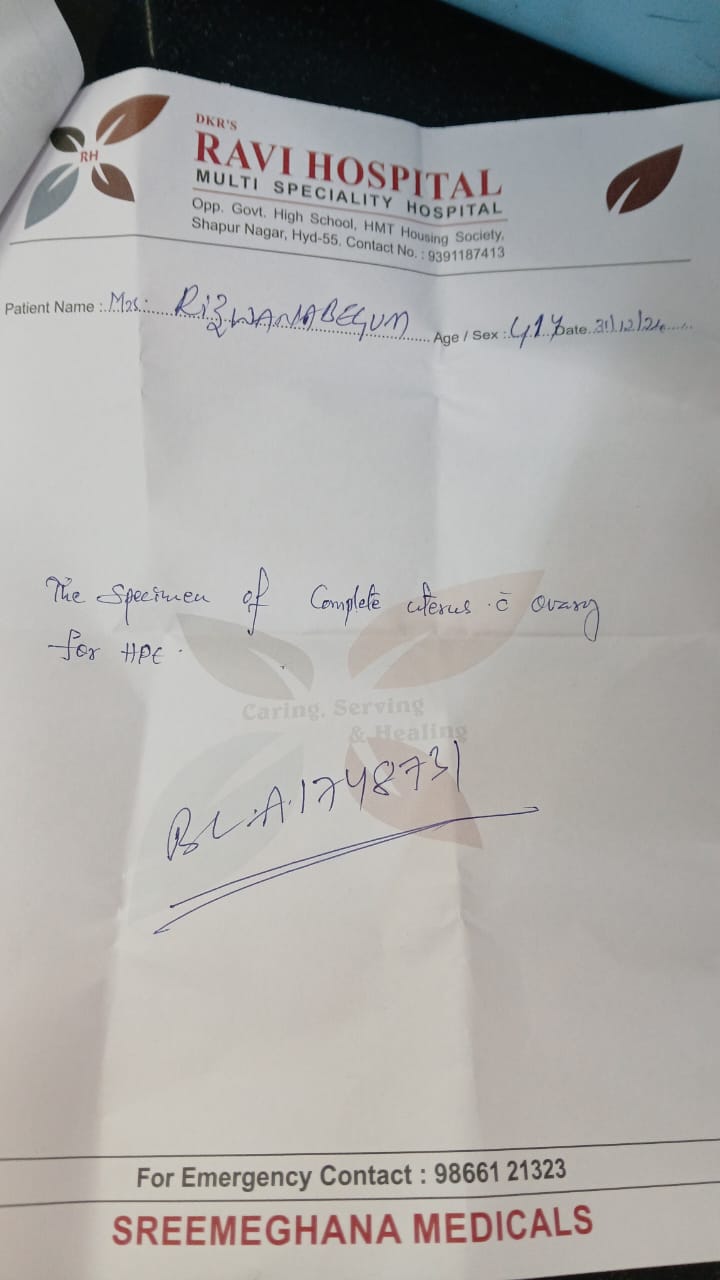 RH
DKR'S
RAVI HOSPITAL
MULTI SPECIALITY HOSPITAL
Opp. Govt. High School, HMT Housing Society,
Shapur Nagar, Hyd-55. Contact No. : 9391187413
Patient Name : Mrs: RIZWANABEGUM Age / Sex : 41Y Date. 31/12/24
The Specimen of Complete uterus c̄ ovary
for HPE.
Caring, Serving
& Healing
BL.A.1748731
For Emergency Contact : 98661 21323
SREEMEGHANA MEDICALS